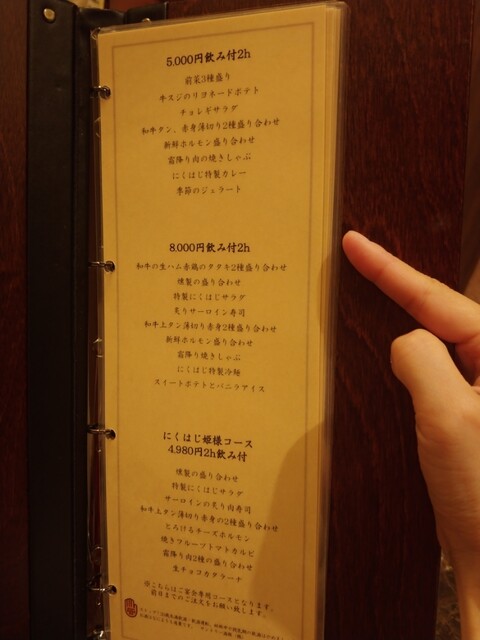 5.000円飲み付2h
前菜3種盛り
牛スジのリヨネードポテト
チョレギサラダ
和牛タン、赤身薄切り2種盛り合わせ
新鮮ホルモン盛り合わせ
霜降り肉の焼きしゃぶ
にくはじ特製カレー
季節のジェラート
8.000円飲み付2h
和牛の生ハム赤鶏のタタキ2種盛り合わせ
燻製の盛り合わせ
特製にくはじサラダ
炙りサーロイン寿司
和牛上タン薄切り赤身2種盛り合わせ
新鮮ホルモン盛り合わせ
霜降り焼きしゃぶ
にくはじ特製冷麺
スイートポテトとバニラアイス
にくはじ姫様コース
4.980円2h飲み付
燻製の盛り合わせ
特製にくはじサラダ
サーロインの炙り肉寿司
和牛上タン薄切り赤身の2種盛り合わせ
とろけるチーズホルモン
焼きフルーツトマトカルビ
霜降り肉2種の盛り合わせ
生チョコカタラーナ
※こちらはご宴会専用コースとなります。
前日までのご注文をお願い致します。